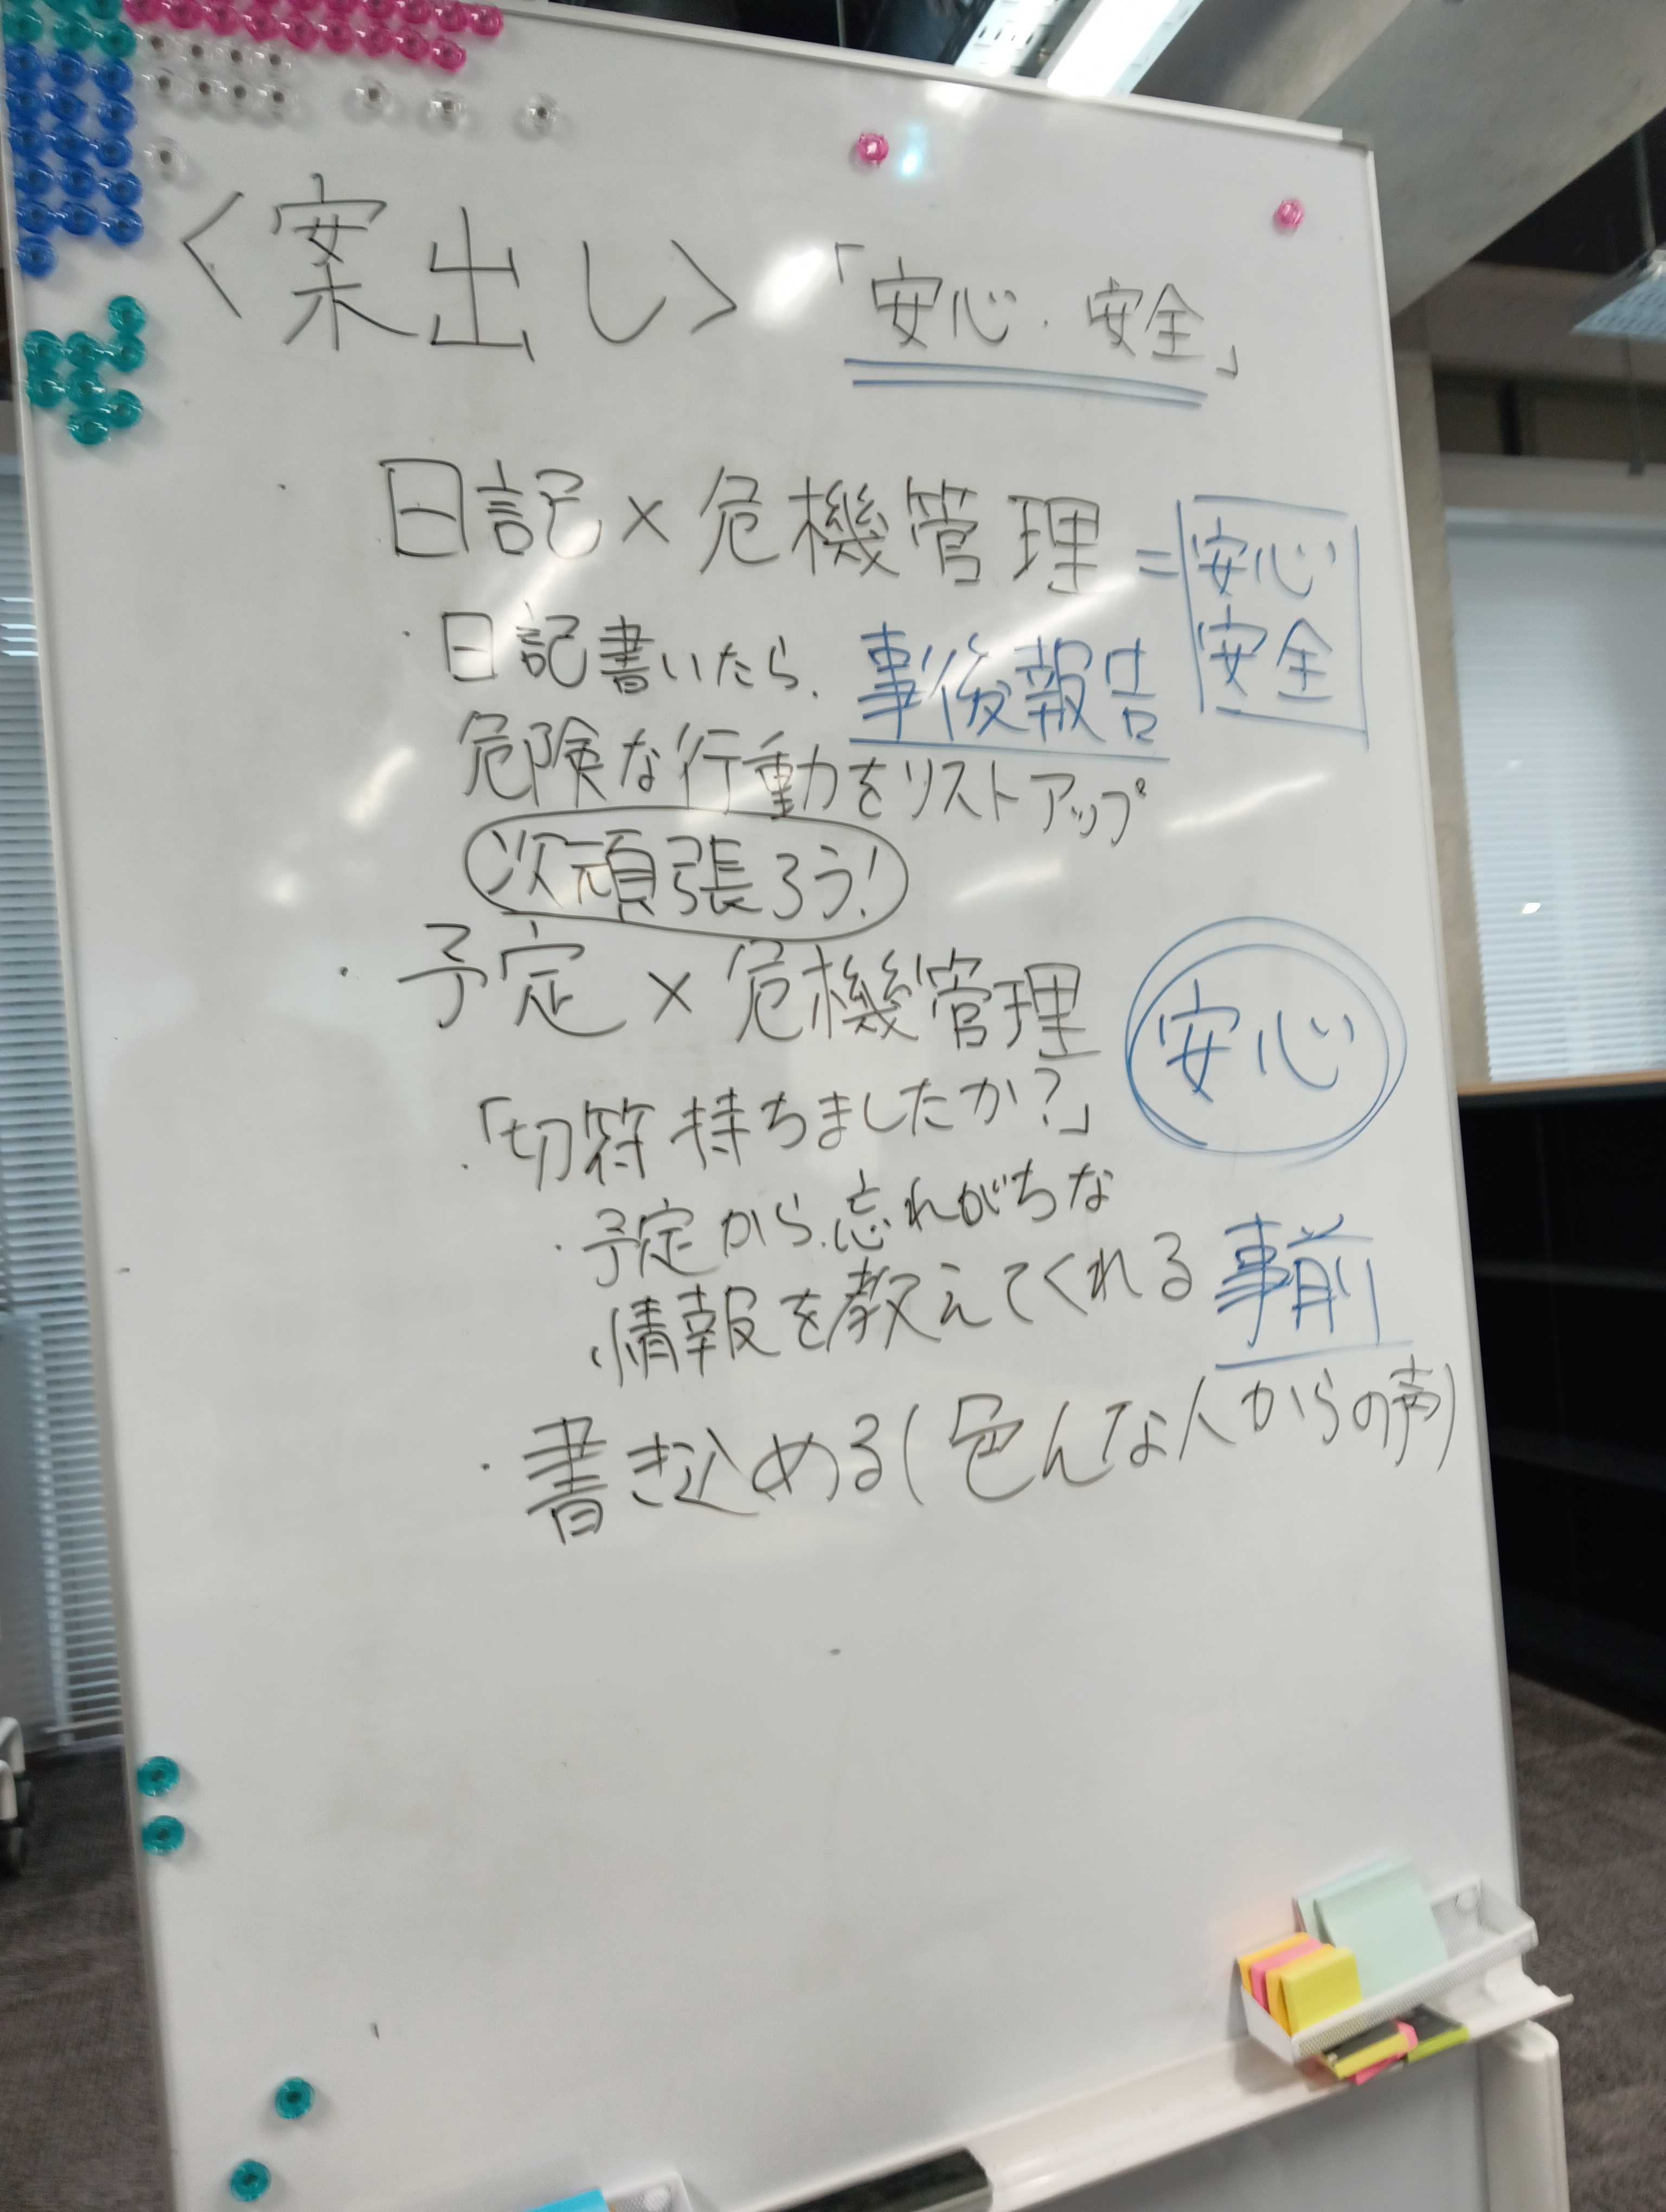 <案出し> 「安心・安全」
・日記×危機管理=安心
安全
・日記書いたら、事後報告
危険な行動をリストアップ
次頑張ろう!
・予定×危機管理 安心
・「切符持ちましたか?」
・予定から、忘れがちな
情報を教えてくれる 事前
・書き込める(色んな人からの声)